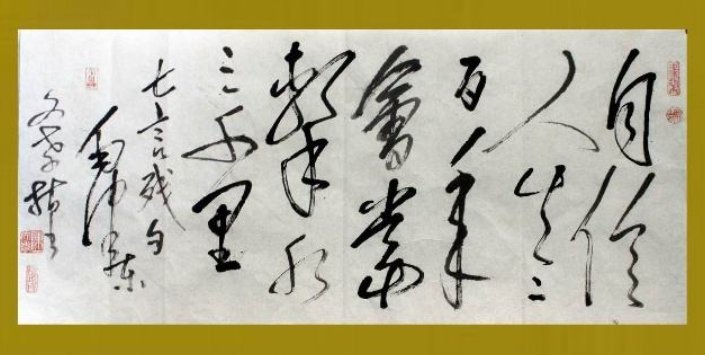 自信
人生二
百年
會當
擊水
三千里
七言殘句
毛澤東